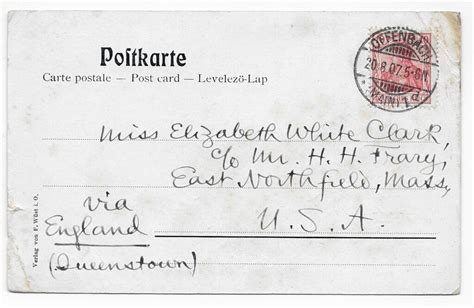 Postkarte
Carte postale — Post card — Levelező-Lap
OFFENBACH
20.8.07.5-6N
(MAIN) 1
d
Miss Elizabeth White Clark,
c/o Mr. H. H. Frary,
East Northfield, Mass,
U. S. A.
via
England
(Queenstown)
Verlag von F. Wüst i. O.